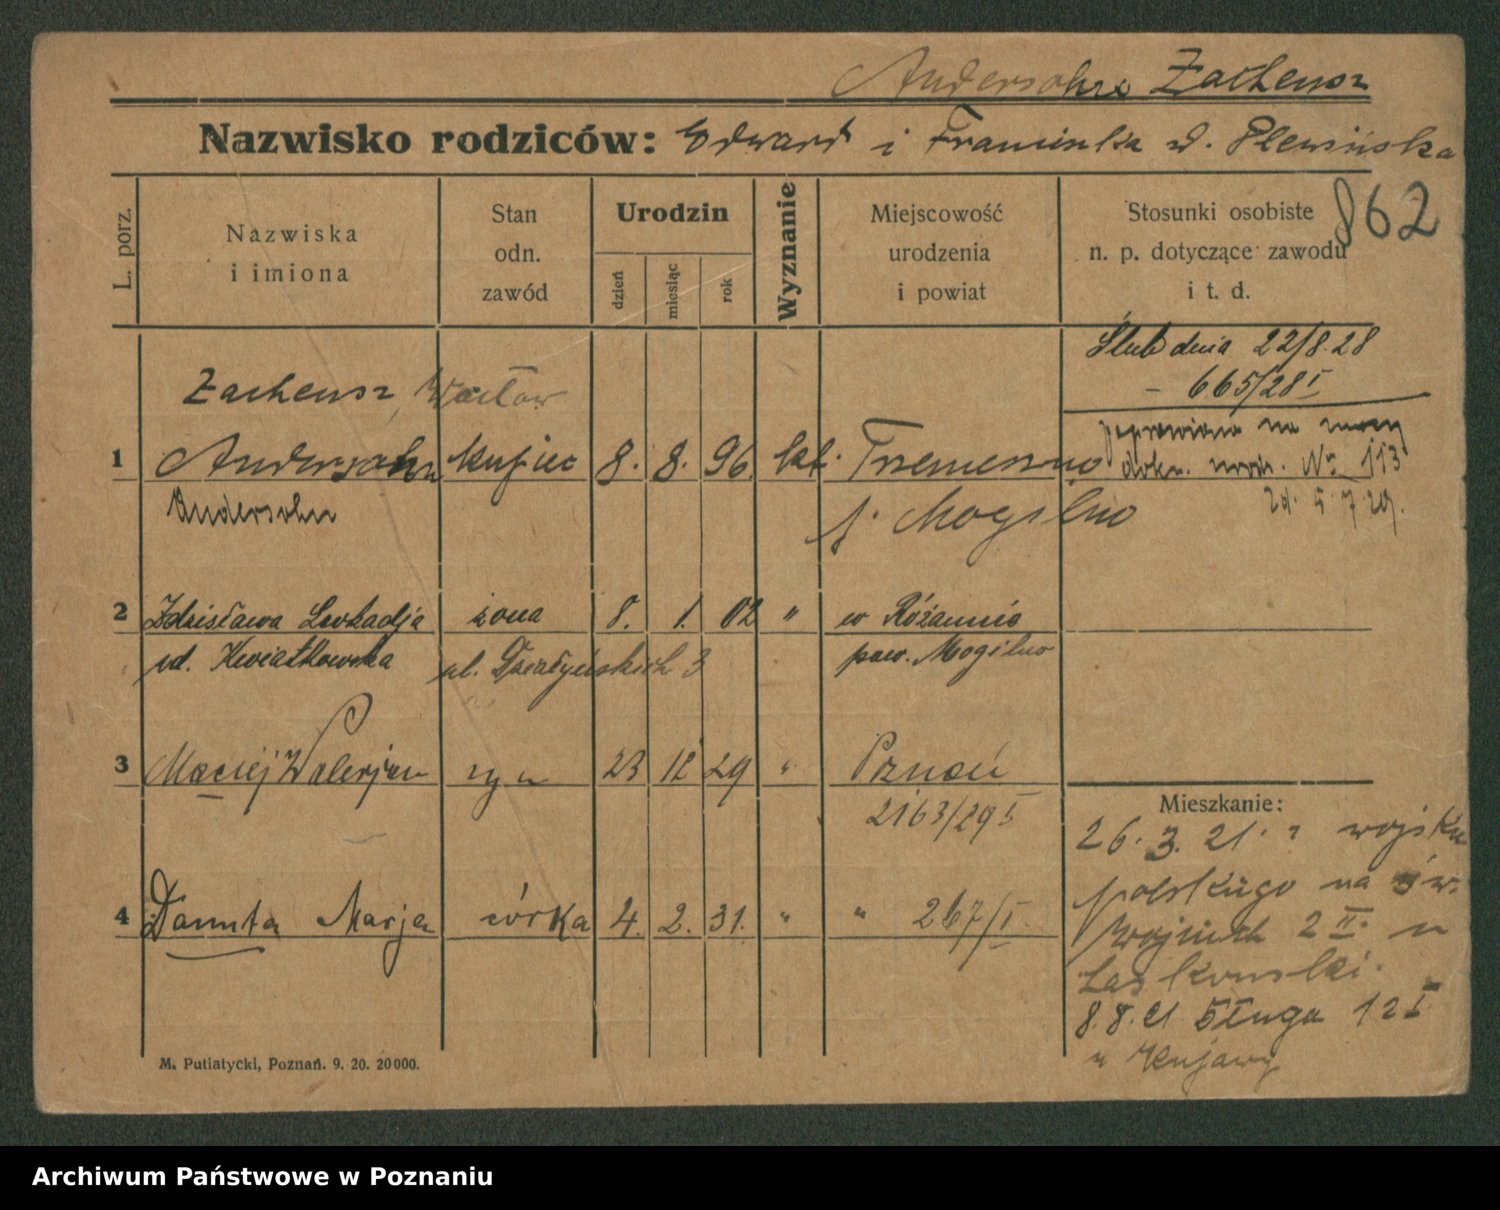 Andersohn Zacheusz
Nazwisko rodziców: Edward i Franciszka d. Plewińska
862
L. porz.
Nazwiska
i imiona
Stan
odn.
zawód
Urodzin
dzień
miesiąc
rok
Wyznanie
Miejscowość
urodzenia
i powiat
Stosunki osobiste
n. p. dotyczące zawodu
i t. d.
Ślub dnia 22/8.28
– 665/28 I
Zacheusz, Wacław
1 Andersohn kupiec 8. 8. 96. kt. Trzemeszno
Andersohn
p. Mogilno
poprawiono na mocy
dokn. urodz. No 113
zd. 5 7 29.
2 Zdzisława Leokadja żona 8. 1. 02 " w Różannie
ud. Kwiatkowska ul. Działyńskich 3 pow. Mogilno
3 Maciej Walerjan syn 23 12 29 " Poznań
2163/29 I
4 Danuta Marja córka 4. 2. 31. " " 267/I
Mieszkanie:
26. 3. 21. z wojska
polskiego na św.
Wojciech 2 II. u
Laskowski.
8. 8. 21 Długa 12 I
u Kujawy
M. Putiatycki, Poznań. 9. 20. 20000.
Archiwum Państwowe w Poznaniu